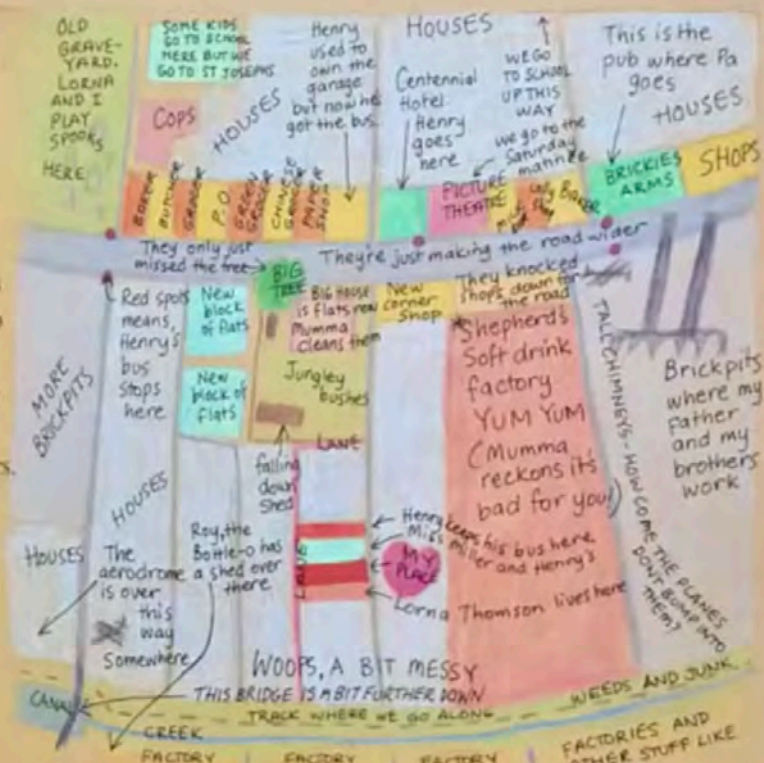 OLD
GRAVE-
YARD.
LORNA
AND I
PLAY
SPOOKS
HERE
SOME KIDS
GO TO SCHOOL
HERE BUT WE
GO TO ST JOSEPHS
COPS
HOUSES
Henry
used to
own the
garage
but now he
got the bus.
HOUSES
Centennial
Hotel
Henry
goes
here
WE GO
TO SCHOOL
UP THIS
WAY
we go to the
Saturday
matinee
This is the
pub where Pa
goes
HOUSES
BUTCHER
GROCER
P.O
GREEN
GROCER
CHINESE
GROCER
PAPER
SHOP
PICTURE
THEATRE
BAKER
BRICKIES
ARMS
SHOPS
They only just
missed the tree
BIG
TREE
They're just making the road wider
They knocked
shops down for
the road
MORE
BRICKPITS
Red spots
means,
Henry's
bus
stops
here
New
block
of flats
New
block of
flats
BIG HOUSE
is flats now
Mumma
cleans them
Jungley
bushes
LANE
falling
down
shed
New
corner
shop
Shepherd's
Soft drink
factory
YUM YUM
(Mumma
reckons it's
bad for you!)
TALL CHIMNEYS - HOW COME THE PLANES
DON'T BUMP INTO
THEM?
Brickpits
where my
Father
and my
brothers
work
HOUSES
HOUSES
The
aerodrome
is over
this
way
Somewhere
Roy, the
Bottle-o has
a shed over
there
LANE
Henry keeps his bus here
Miss Miller and Henry's
MY
PLACE
Lorna Thomson lives here
WOOPS, A BIT MESSY
THIS BRIDGE IS A BIT FURTHER DOWN
CANAL
TRACK WHERE WE GO ALONG
WEEDS AND JUNK
CREEK
FACTORY
FACTORY
FACTORY
FACTORIES AND
OTHER STUFF LIKE